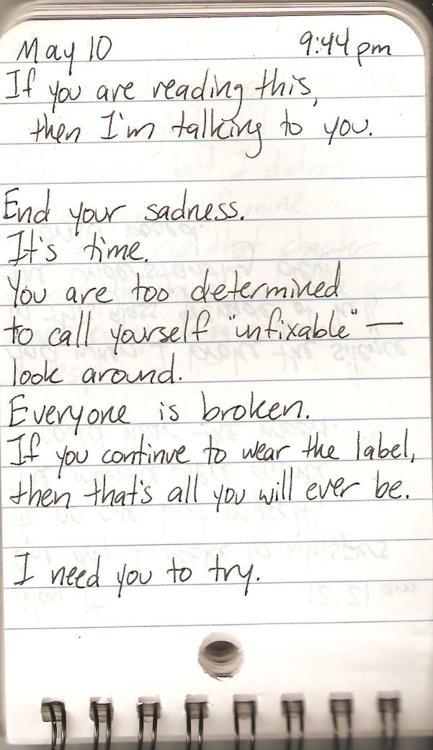 May 10 9:44 pm
If you are reading this,
then I'm talking to you.
End your sadness.
It's time.
You are too determined
to call yourself "unfixable" —
look around.
Everyone is broken.
If you continue to wear the label,
then that's all you will ever be.
I need you to try.